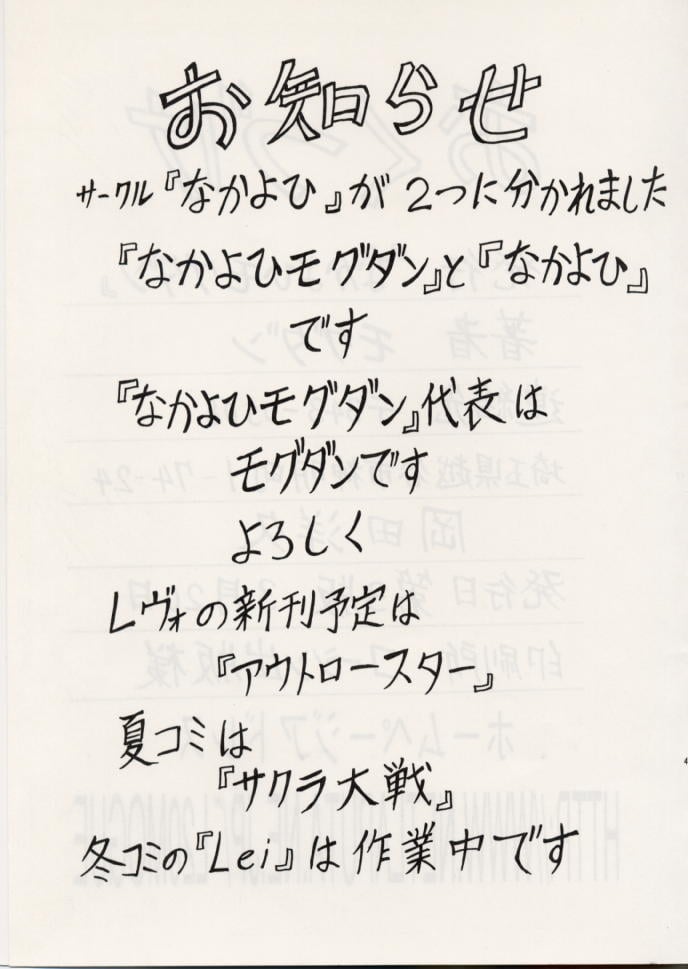 お知らせ
サークル『なかよひ』が２つに分かれました
『なかよひモグダン』と『なかよひ』
です
『なかよひモグダン』代表は
モグダンです
よろしく
レヴォの新刊予定は
『アウトロースター』
夏コミは
『サクラ大戦』
冬コミの『Lei』は作業中です
4